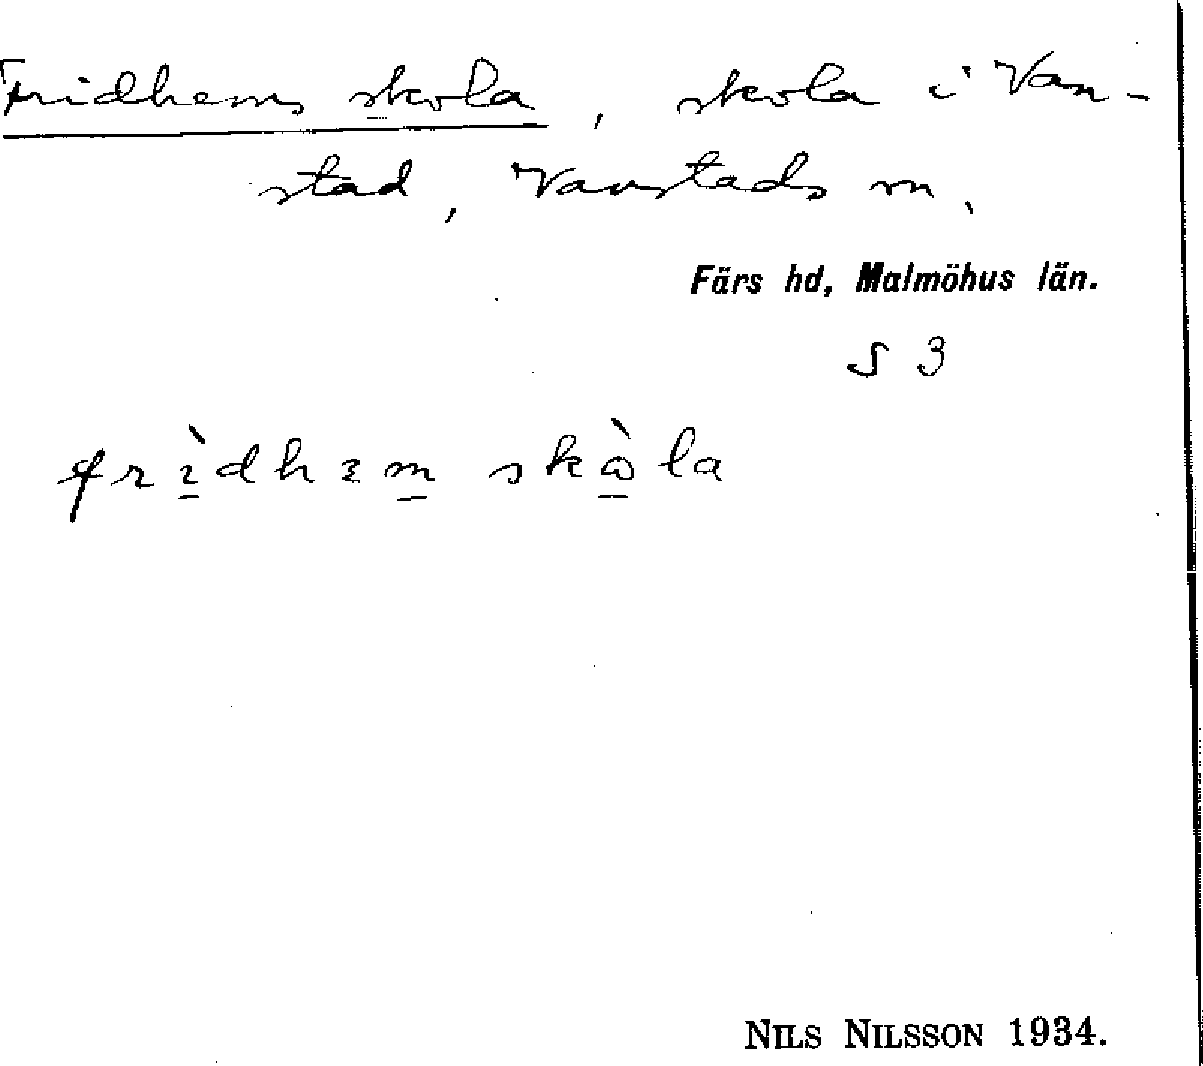 Fridhems skola, skola i Van-
stad, Vanstads sn,
Färs hd, Malmöhus län.
S 3
frìdhɛm skòla
NILS NILSSON 1934.